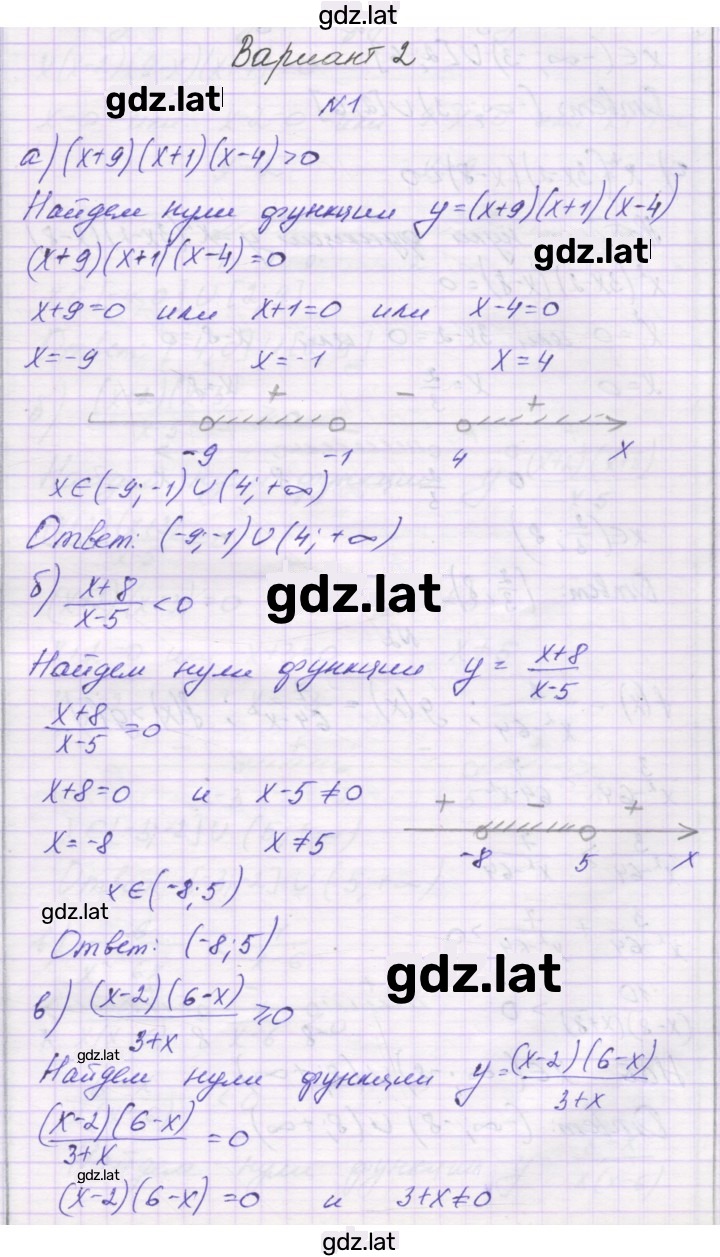 gdz.lat
Вариант 2
gdz.lat
N1
а) (x+9)(x+1)(x-4)>0
Найдем нули функции y=(x+9)(x+1)(x-4)
(x+9)(x+1)(x-4)=0
gdz.lat
x+9=0 или x+1=0 или x-4=0
x=-9 x=-1 x=4
- + - +
-9 -1 4 x
x∈(-9;-1)∪(4;+∞)
Ответ: (-9;-1)∪(4;+∞)
б) (x+8)/(x-5) <0
gdz.lat
Найдем нули функции y= (x+8)/(x-5)
(x+8)/(x-5) =0
x+8=0 и x-5≠0
+ - +
x=-8 x≠5
-8 5 x
x∈(-8;5)
gdz.lat
Ответ: (-8;5)
gdz.lat
в) (x-2)(6-x)/(3+x) ≥0
gdz.lat
Найдем нули функции y= (x-2)(6-x)/(3+x)
(x-2)(6-x)/(3+x) =0
gdz.lat
(x-2)(6-x)=0 и 3+x≠0
gdz.lat